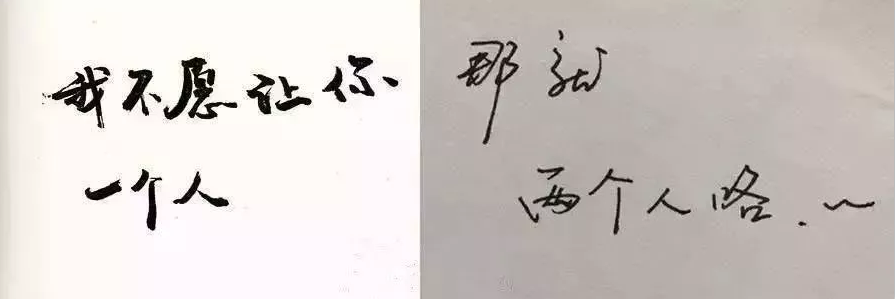 我不愿让你
一个人
那就
两个人咯.~